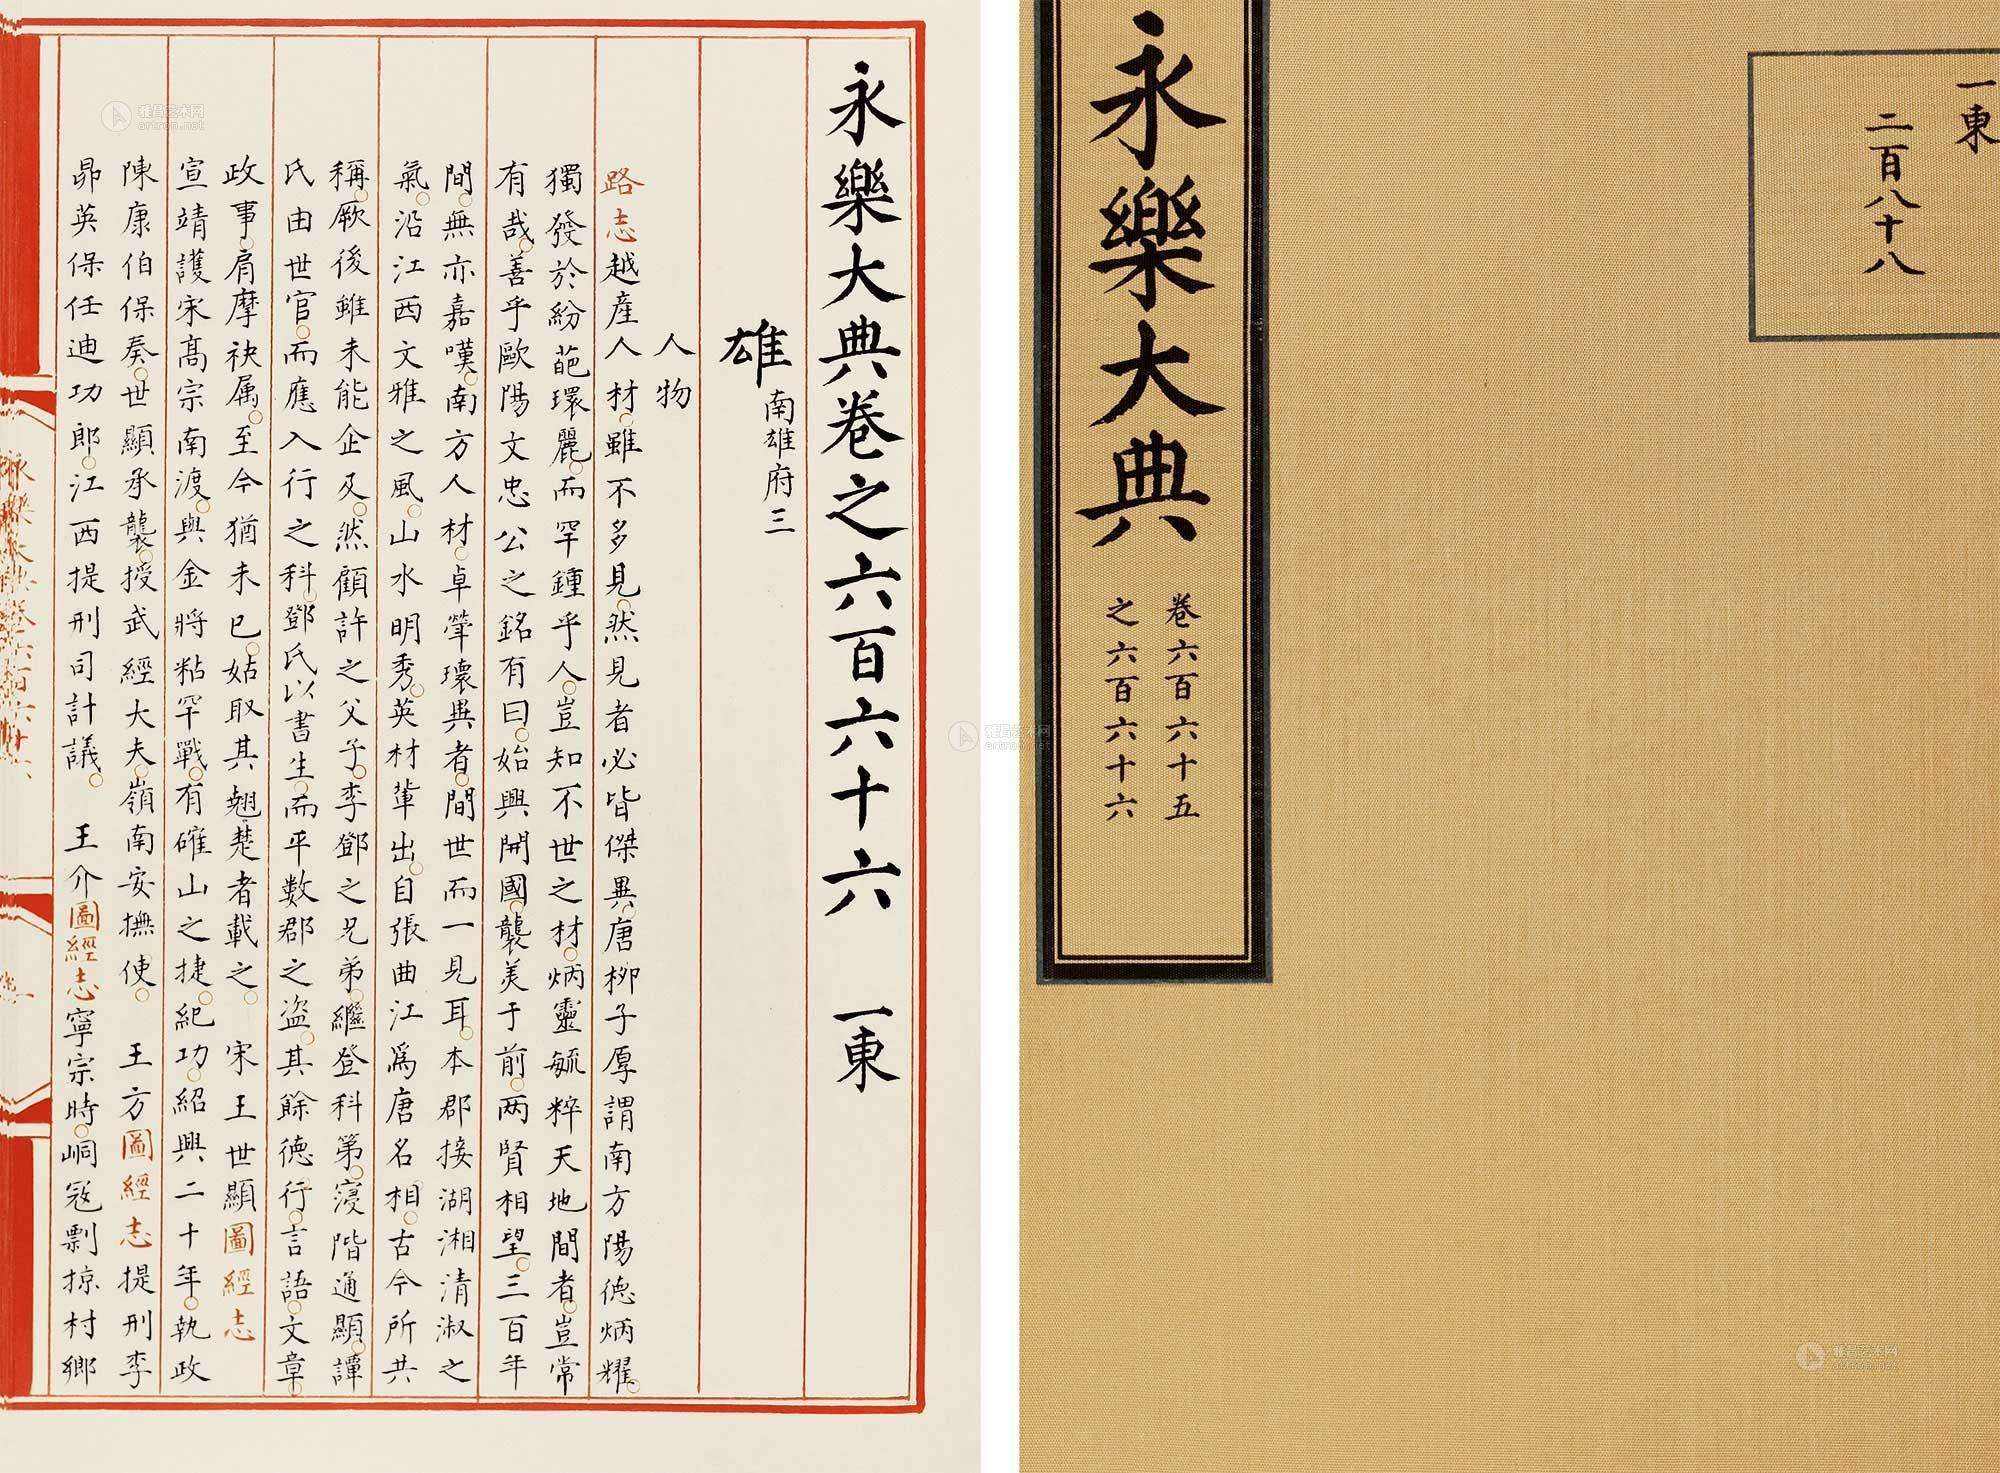 永樂大典卷之六百六十六 一東
雄 南雄府三
人物
路志越產人材雖不多見然見者必皆傑異唐柳子厚謂南方陽德炳耀
獨發於紛葩環麗而罕鍾乎人豈知不世之材炳靈毓粹天地間者豈常
有哉善乎歐陽文忠公之銘有曰始興開國襲美于前两賢相望三百年
間無亦嘉嘆南方人材卓犖環異者間世而一見耳本郡接湖湘清淑之
氣沿江西文雅之風山水明秀英材輩出自張曲江爲唐名相古今所共
稱厥後雖未能企及然顧許之父子李鄧之兄弟繼登科第寖階通顯譚
氏由世官而應入行之科鄧氏以書生而平數郡之盗其餘德行言語文章
政事肩摩袂属至今猶未已姑取其翹楚者載之 宋王世顯圖經志
宣靖護宋高宗南渡與金將粘罕戰有確山之捷紀功紹興二十年執政
陳康伯保奏世顯承襲授武經大夫嶺南安撫使 王方圖經志提刑李
昴英保任迪功郎江西提刑司計議 王介圖經志寧宗時峒寇剽掠村鄉
永樂大典 卷六百六十五
之六百六十六
一東
二百八十八
雅昌艺术网
artron.net